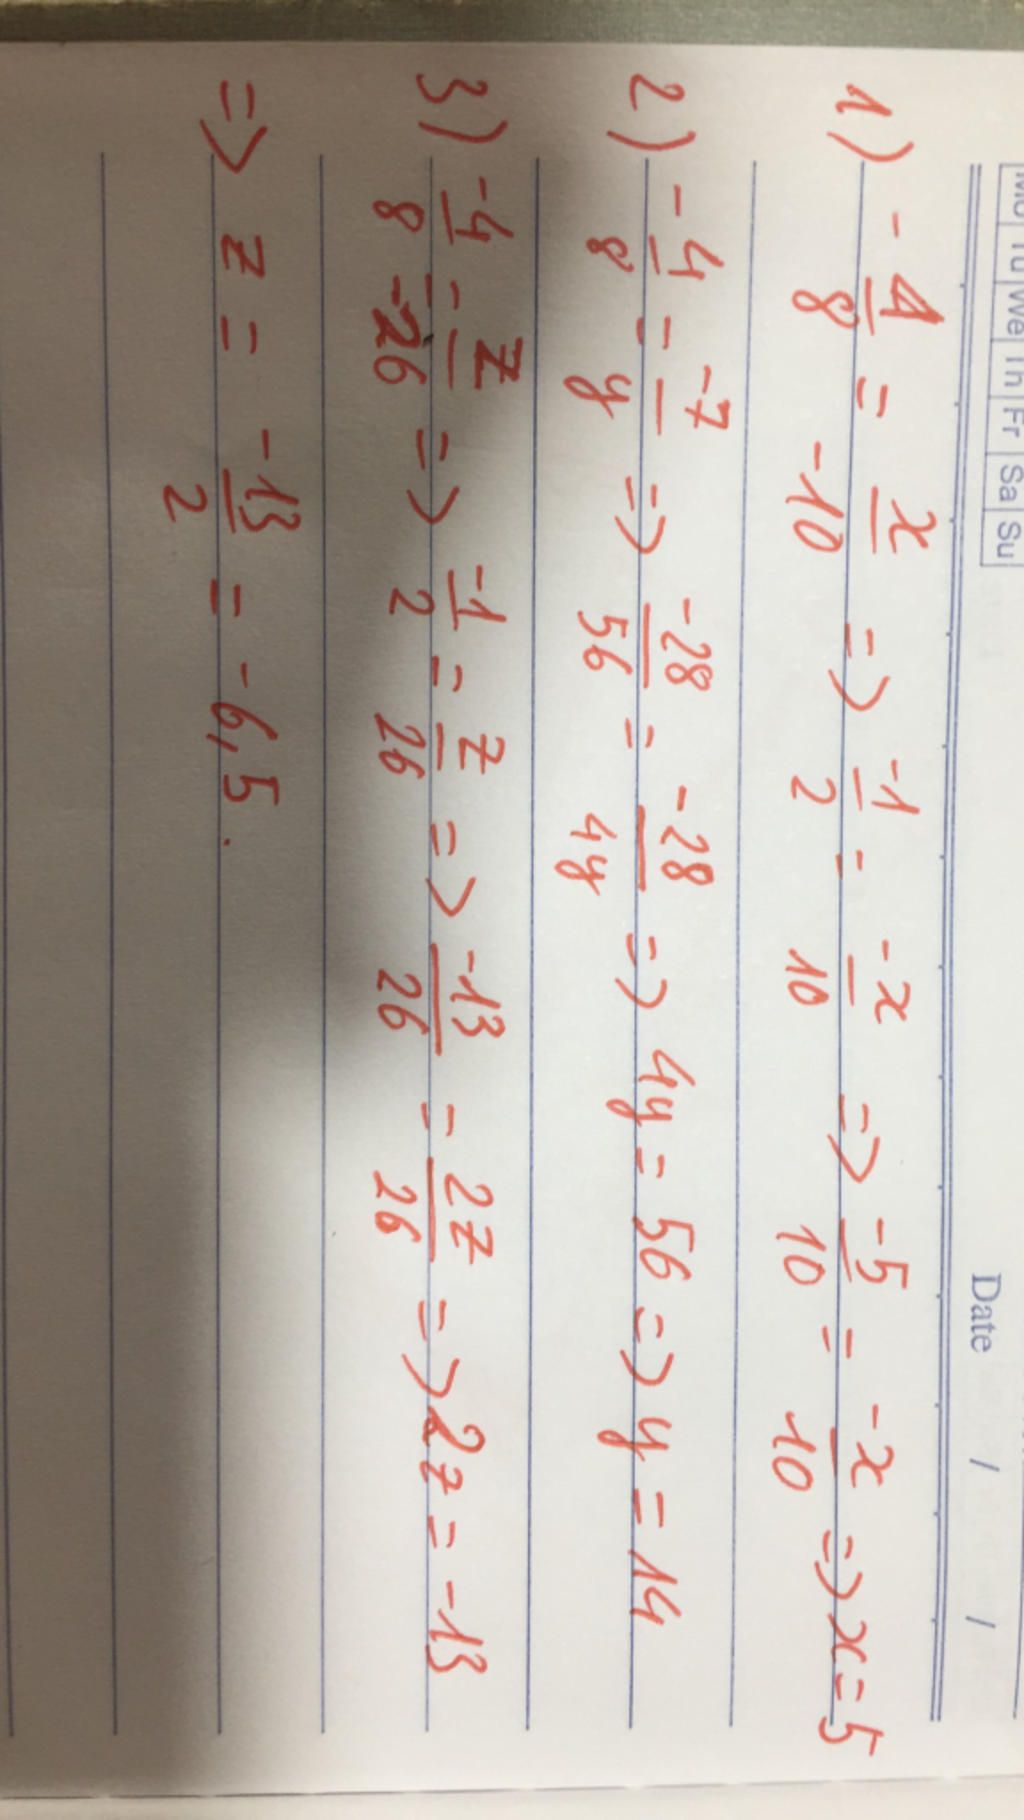 Mo Tu We Th Fr Sa Su
Date / /
1) -4/8 = x/-10 => -1/2 = -x/10 => -5/10 = -x/10 => x = 5
2) -4/8 = -7/y => -28/56 = -28/4y => 4y = 56 => y = 14
3) -4/8 = z/-26 => -1/2 = z/26 => -13/26 = 2z/26 => 2z = -13
=> z = -13/2 = -6,5.